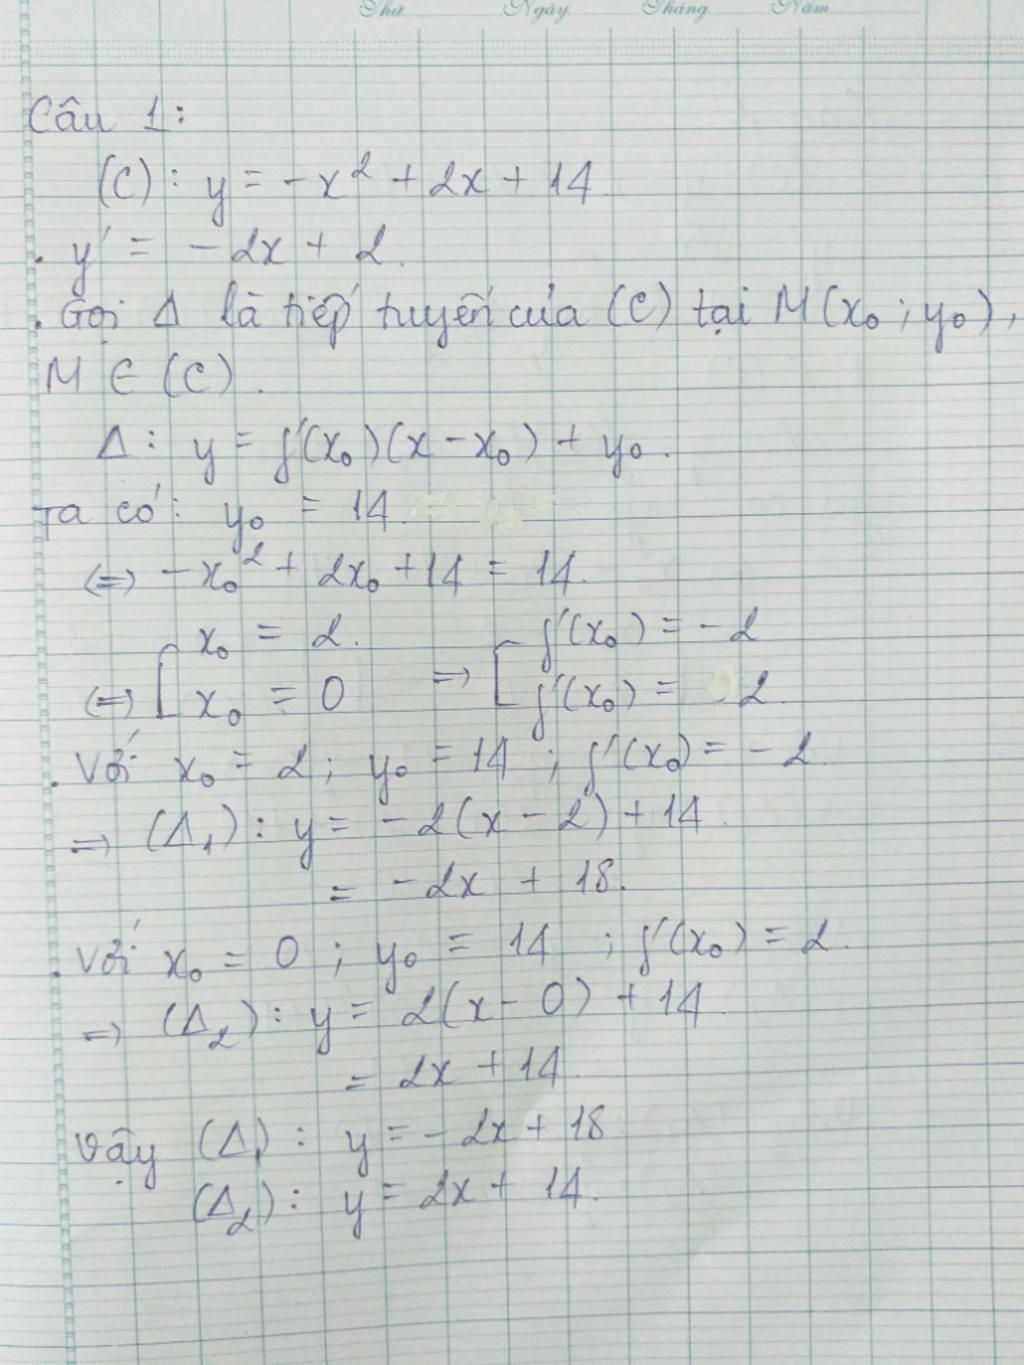 Thứ Ngày Tháng Năm
Câu 1:
(C): y = -x² + 2x + 14
. y' = -2x + 2.
. Gọi Δ là tiếp tuyến của (C) tại M(x₀; y₀),
M ∈ (C).
Δ: y = f'(x₀)(x - x₀) + y₀.
Ta có: y₀ = 14
(=) -x₀² + 2x₀ + 14 = 14.
(=) [ x₀ = 2. => [ f'(x₀) = -2
x₀ = 0 f'(x₀) = 2.
. Với x₀ = 2; y₀ = 14; f'(x₀) = -2
=> (Δ₁): y = -2(x - 2) + 14
= -2x + 18.
. Với x₀ = 0; y₀ = 14; f'(x₀) = 2.
=> (Δ₂): y = 2(x - 0) + 14
= 2x + 14.
Vậy (Δ₁): y = -2x + 18
(Δ₂): y = 2x + 14.